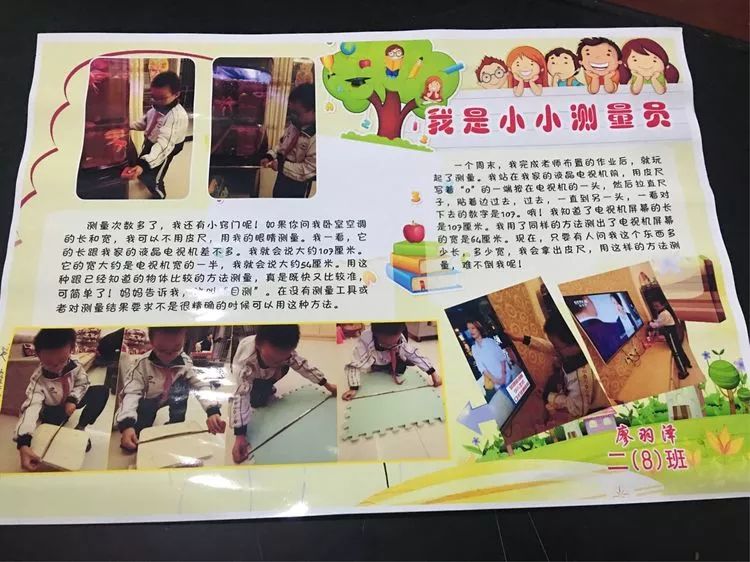 我是小小测量员
一个周末，我完成老师布置的作业后，就玩
起了测量。我站在我家的液晶电视机前，用皮尺
写着“0”的一端按在电视机的一头，然后拉直尺
子，贴着边过去，过去，一直到另一头，一看对
下去的数字是107。哦！我知道了电视机屏幕的长
是107厘米。我用了同样的方法测出了电视机屏幕
的宽是64厘米。现在，只要有人问我这个东西多
少长，多少宽，我会拿出皮尺，用这样的方法测
量，难不倒我呢！
测量次数多了，我还有小窍门呢！如果你问我卧室空调
的长和宽，我可以不用皮尺，用我的眼睛测量。我一看，它
的长跟我家的液晶电视机差不多。我就会说大约107厘米。
它的宽大约是电视机宽的一半，我就会说大约54厘米。用这
种跟已经知道的物体比较的方法测量，真是既快又比较准，
可简单了！妈妈告诉我，叫“目测”。在没有测量工具或
者对测量结果要求不是很精确的时候可以用这种方法。
廖羽泽
二(8)班